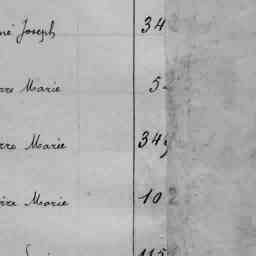 né Joseph 34
rre Marie 5
rre Marie 349
rre Marie 102
115